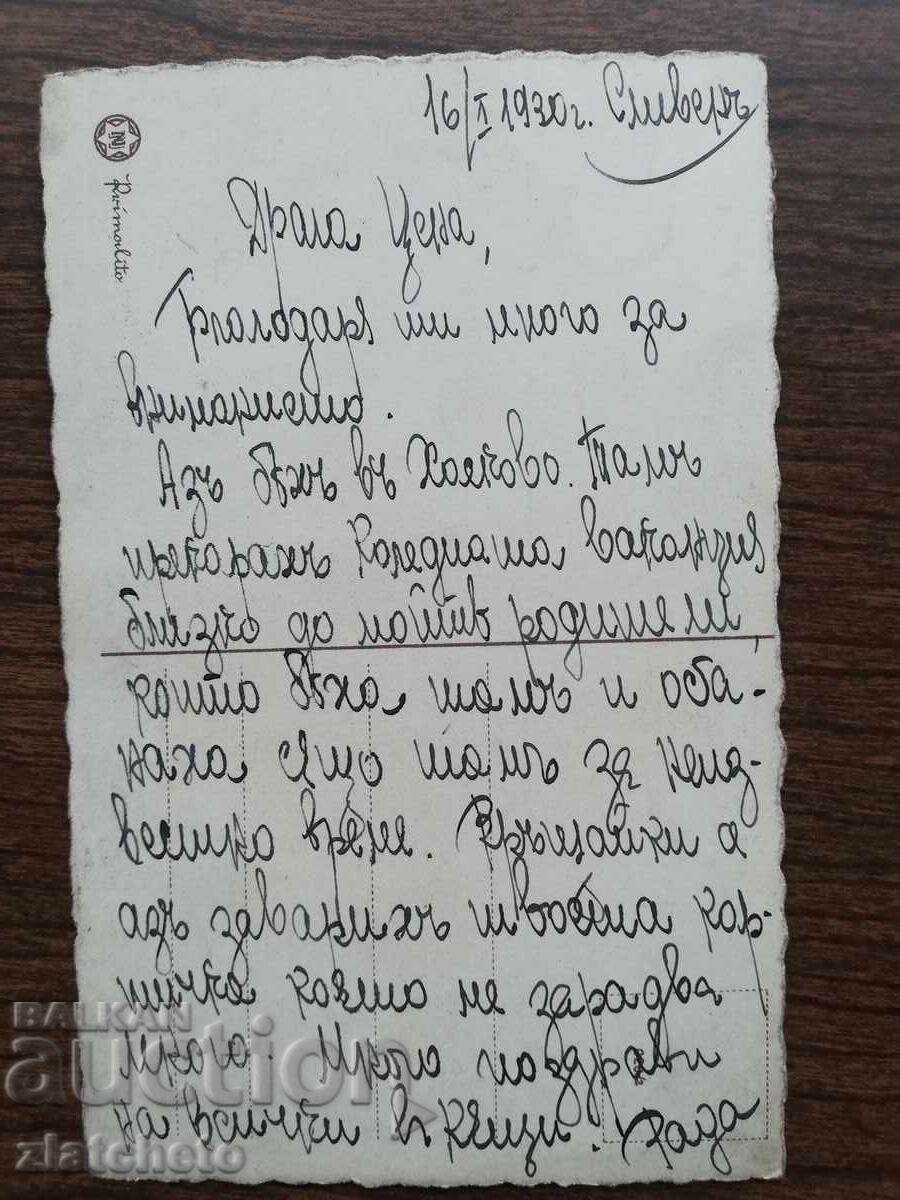 16/I 1930г. Сливенъ
NJ
Драга Цена,
Rvimalito
Благодаря ти много за
вниманието.
Азъ бѣхъ въ Хасково. Тамъ
прекарахъ Коледната ваканция
близко до моитѣ родители,
които бѣха тамъ и оста-
наха също тамъ за неиз-
вестно време. Връщайки се
азъ заварихъ твоята кар-
тичка която ме зарадва
много. Много поздрави
на всички въ къщи. Рада
BALKAN
auction
zlatcheto